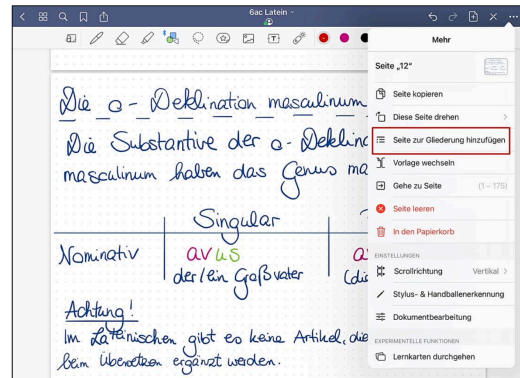 6ac Latein
Mehr
Seite „12“
Seite kopieren
Diese Seite drehen
Seite zur Gliederung hinzufügen
Vorlage wechseln
Gehe zu Seite (1 – 175)
Seite leeren
In den Papierkorb
EINSTELLUNGEN
Scrollrichtung Vertikal
Stylus- & Handballenerkennung
Dokumentbearbeitung
EXPERIMENTELLE FUNKTIONEN
Lernkarten durchgehen
Die o - Deklination masculinum
Die Substantive der o- Deklina
masculinum haben das Genus ma
Singular
Nominativ avus a
der/ein Großvater (die
Achtung!
Im Lateinischen gibt es keine Artikel, die
beim Übersetzen ergänzt werden.